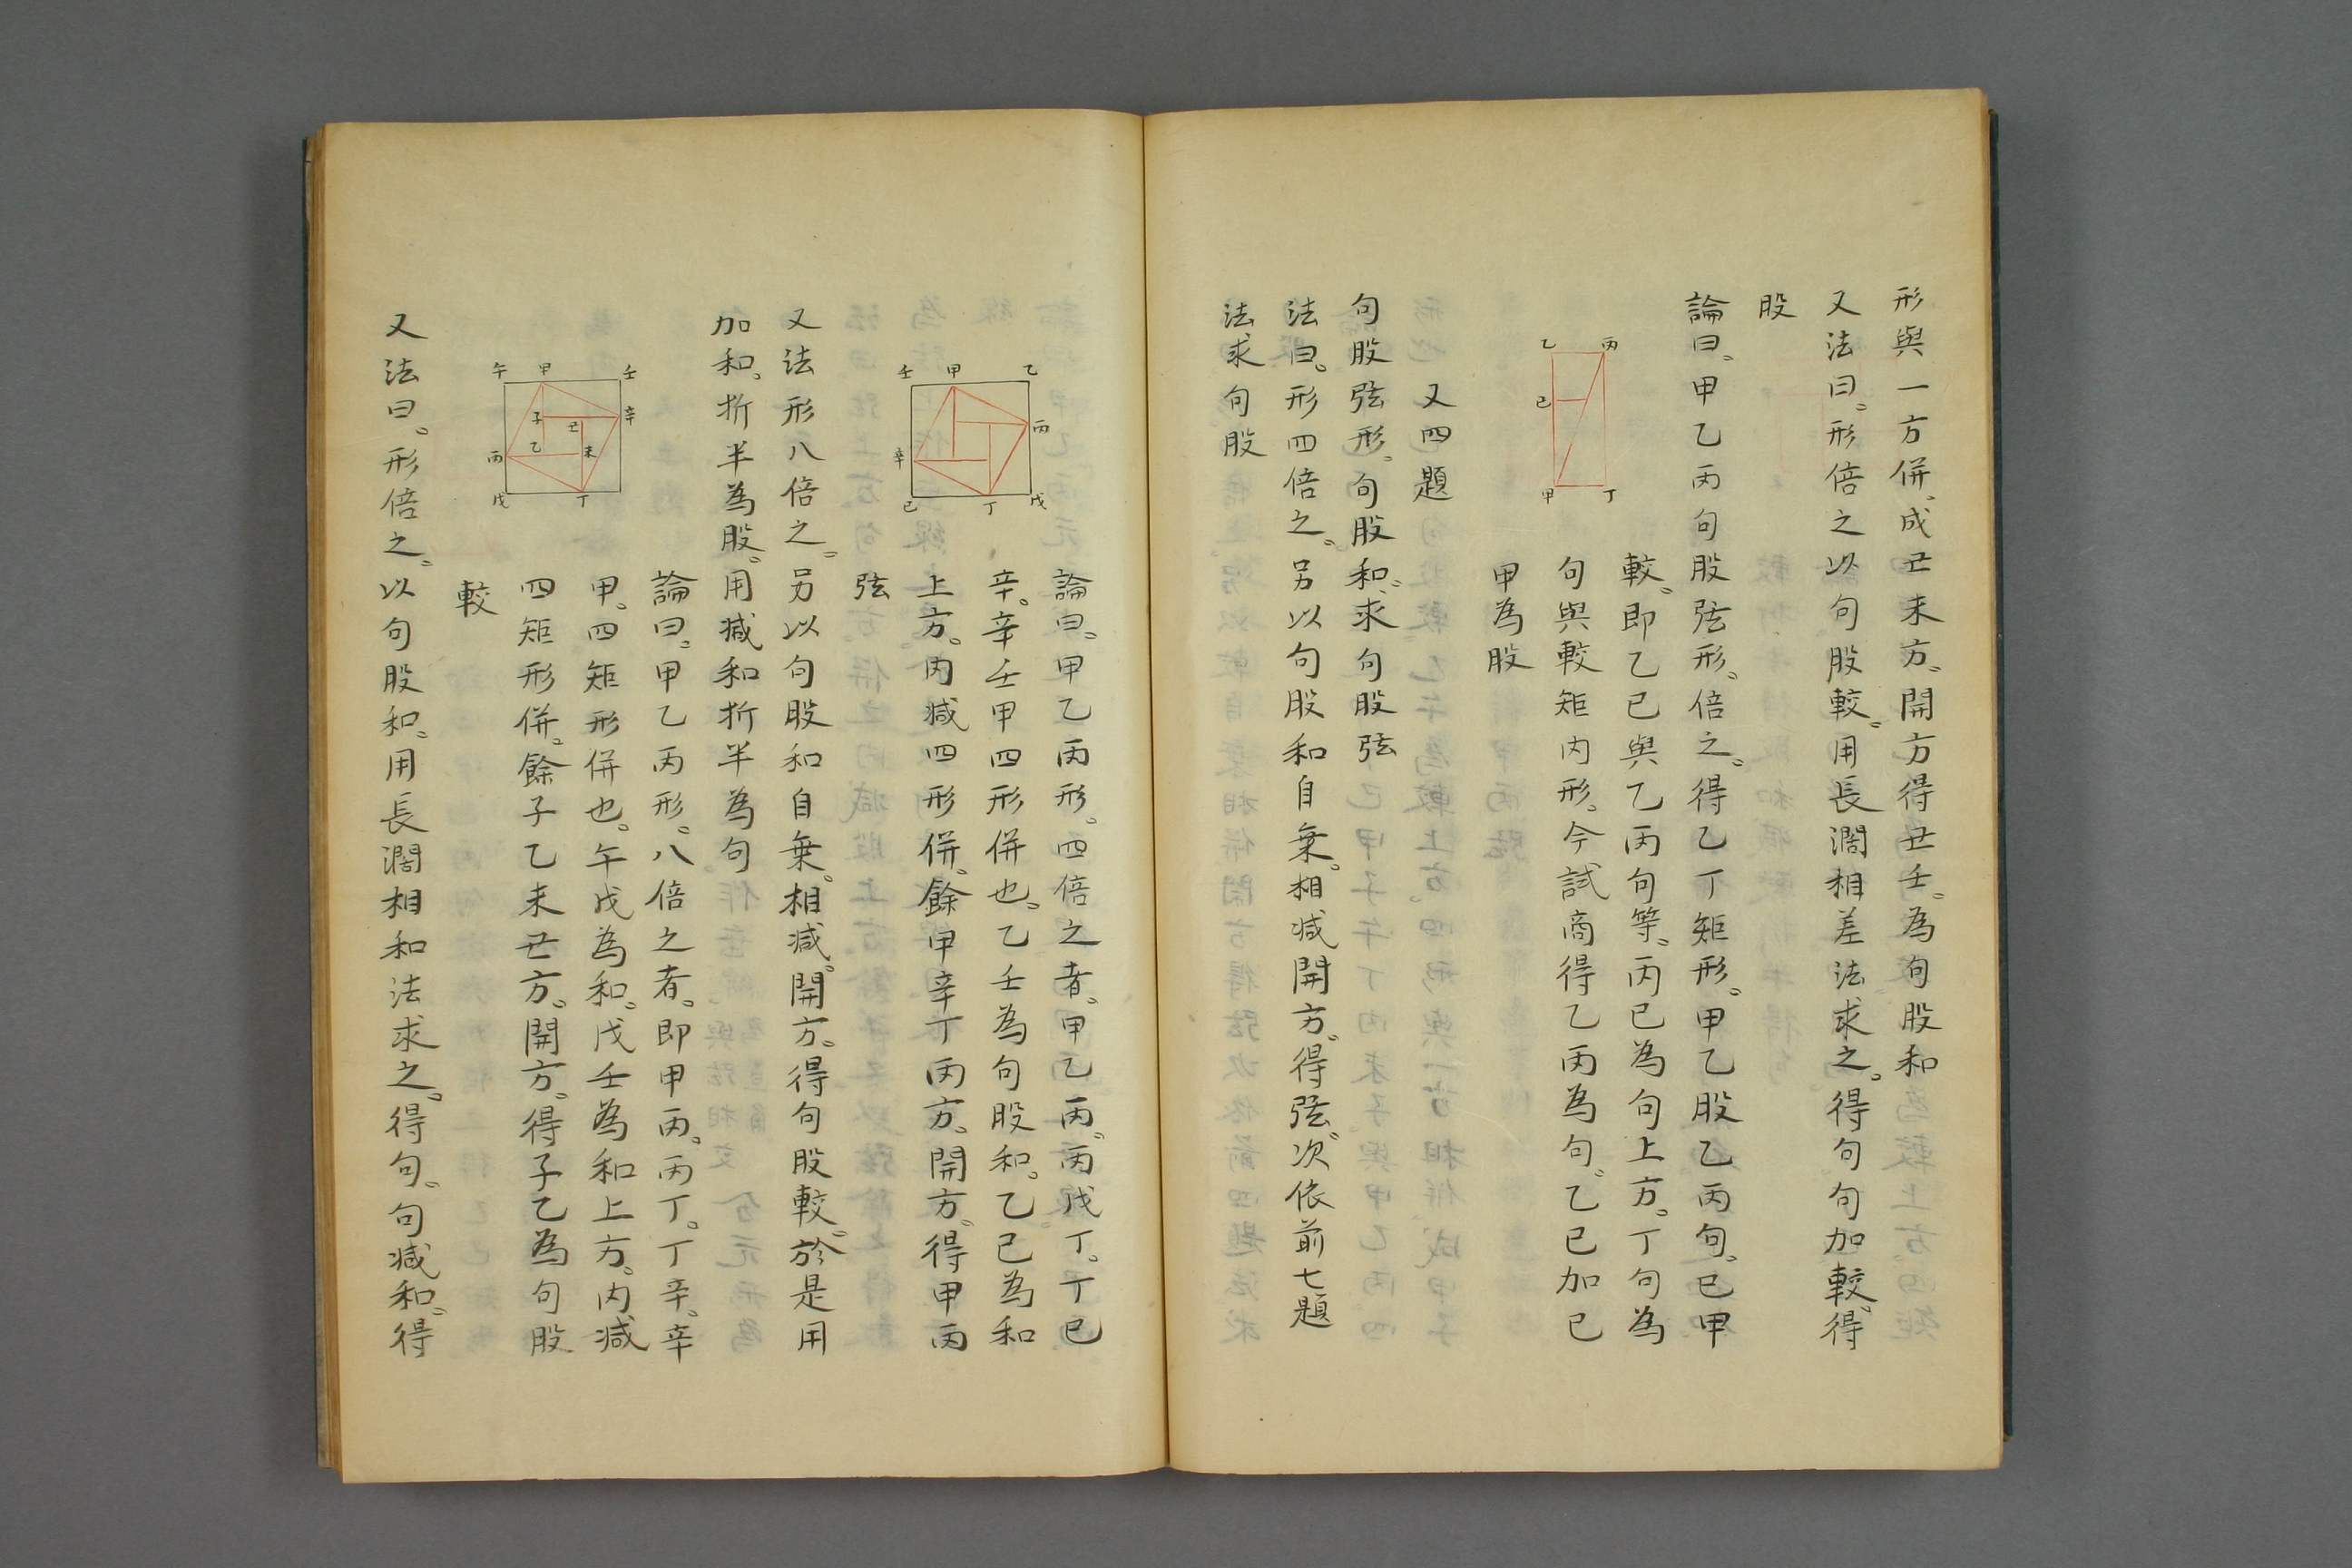 形與一方併、成丑未方。開方得丑壬。為句股和
又法曰。形倍之以句股較。用長濶相差法求之。得句句加較。得
股
論曰。甲乙丙句股弦形。倍之。得乙丁矩形。甲乙股乙丙句。已甲
較。即乙已與乙丙句等。丙已為句上方。丁句為
句與較矩內形。今試商得乙丙為句。乙已加已
甲為股
乙 丙
已
甲 丁
又四題
句股弦形。句股和、求句股弦
法曰。形四倍之。另以句股和自乗。相减開方。得弦。次依前七題
法求句股
論曰。甲乙丙形。四倍之者。甲乙丙。丙戊丁。丁已
辛。辛壬甲四形併也。乙壬為句股和。乙已為和
上方。內減四形併。餘甲辛丁丙方。開方。得甲丙
弦
壬 甲 乙
丙
辛
已 丁 戊
又法形八倍之。另以句股和自乗。相减。開方。得句股較。於是用
加和。折半為股。用减和折半為句
論曰。甲乙丙形。八倍之者。即甲丙。丙丁。丁辛。辛
甲。四矩形併也。午戊為和。戊壬為和上方。內减
四矩形併。餘子乙未丑方。開方。得子乙為句股
較
午 甲 壬
子 丑 辛
丙 乙 未
戊 丁
又法曰。形倍之。以句股和。用長濶相和法求之。得句。句减和。得